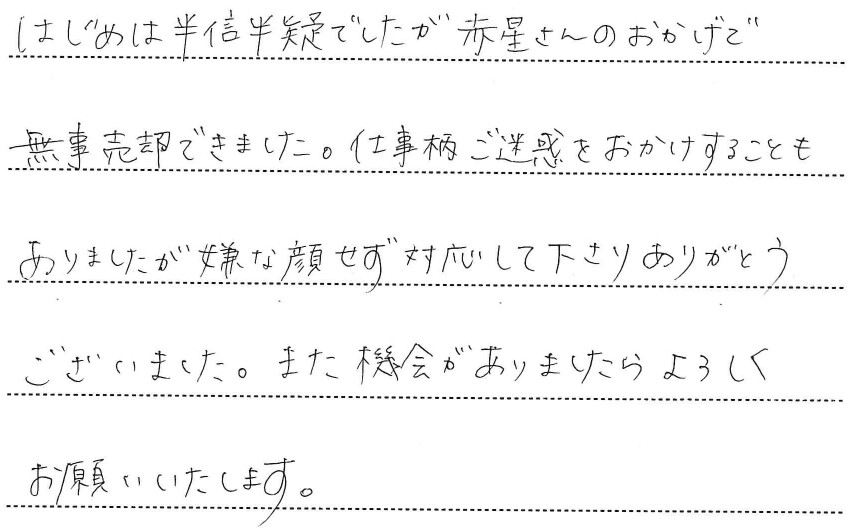 はじめは半信半疑でしたが赤星さんのおかげで
無事売却できました。仕事柄ご迷惑をおかけすることも
ありましたが嫌な顔せず対応して下さりありがとう
ございました。また機会がありましたらよろしく
お願いいたします。